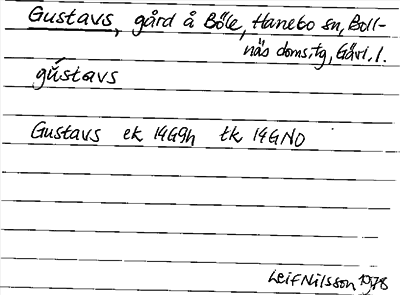 Gustavs, gård å Böle, Hanebo sn, Boll-
näs doms,tg, Gävl. l.
gústavs
Gustavs ek 14G9h tk 14GNO
Leif Nilsson 1978